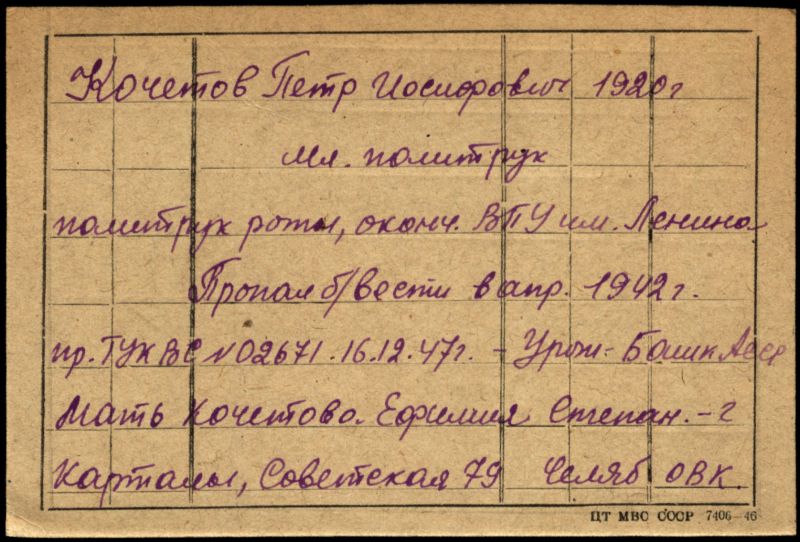 Кочетов Петр Иосифович 1920г
мл. политрук
политрук роты, оконч. ВПУ им. Ленина
Пропал б/вести в апр. 1942г.
пр. ГУК ВС №02671. 16.12.47г. - Урож- Башк Асср
Мать Кочетова Ефимия Степан. - г
Карталы, Советская 79 Челяб ОВК.
ЦТ МВС СССР 7406—46